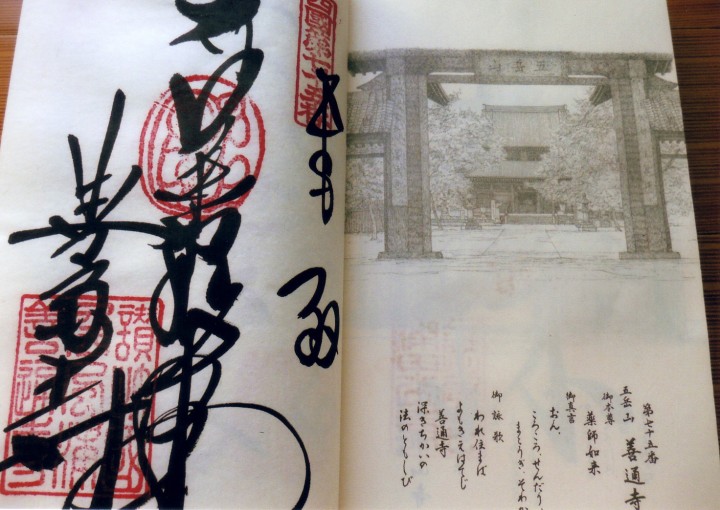 奉納
善通寺
五岳山
第七十五番
五岳山 善通寺
御本尊
薬師如来
御真言
おん、
ころころ、せんだ
まとうぎ、そわか
御詠歌
われ住まば
よもきえはてじ
善通寺
深きちかいの
法のともしび